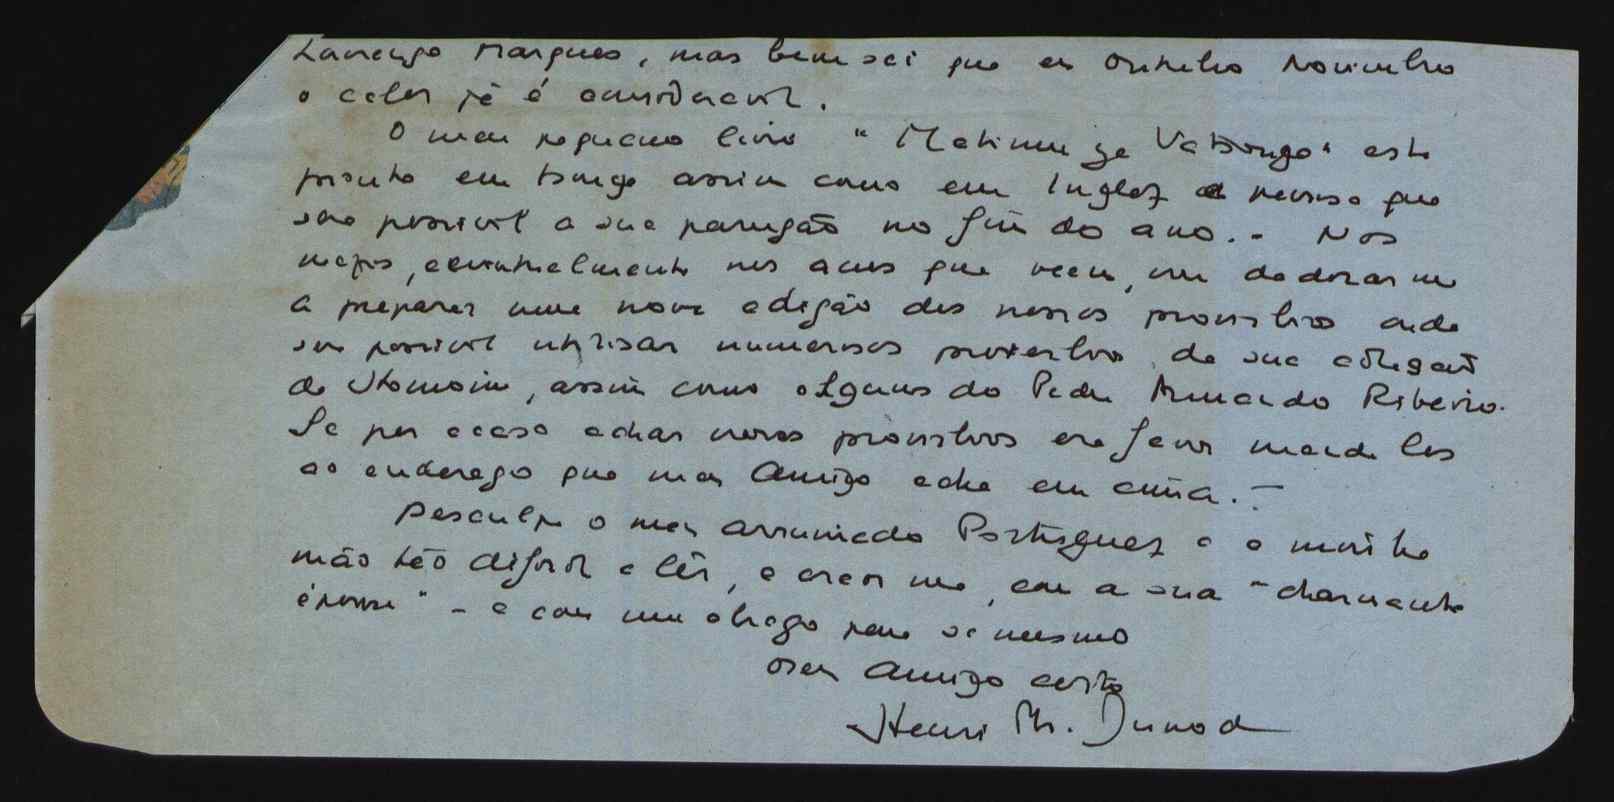 Lourenço Marques, mas bem sei que em Outubro Novembro
o calor já é consideravel.
O meu pequeno livro "Matimu ya Vatsonga" está
pronto em tsonga assim como em Inglez e penso que
será possivel a sua parução no fim do ano. - Nos
mezes, eventualmente nos anos que veem, vou dedicar me
a preparar uma nova edição dos nossos proverbios onde
será possivel utilisar numerosos proverbios da sua coleção
de Homoine, assim como alguns do Padre Armando Ribeiro.
Se por acaso achar novos proverbios era favor manda los
ao endereço que meu Amigo acha em cima. -
Desculpe o meu arruinado Portuguez e a minha
mão tão dificil a lêr, e crer me, com a sua "charmante
épouse" - e com um abraço para si mesmo
seu Amigo certo
Henri Ph. Junod